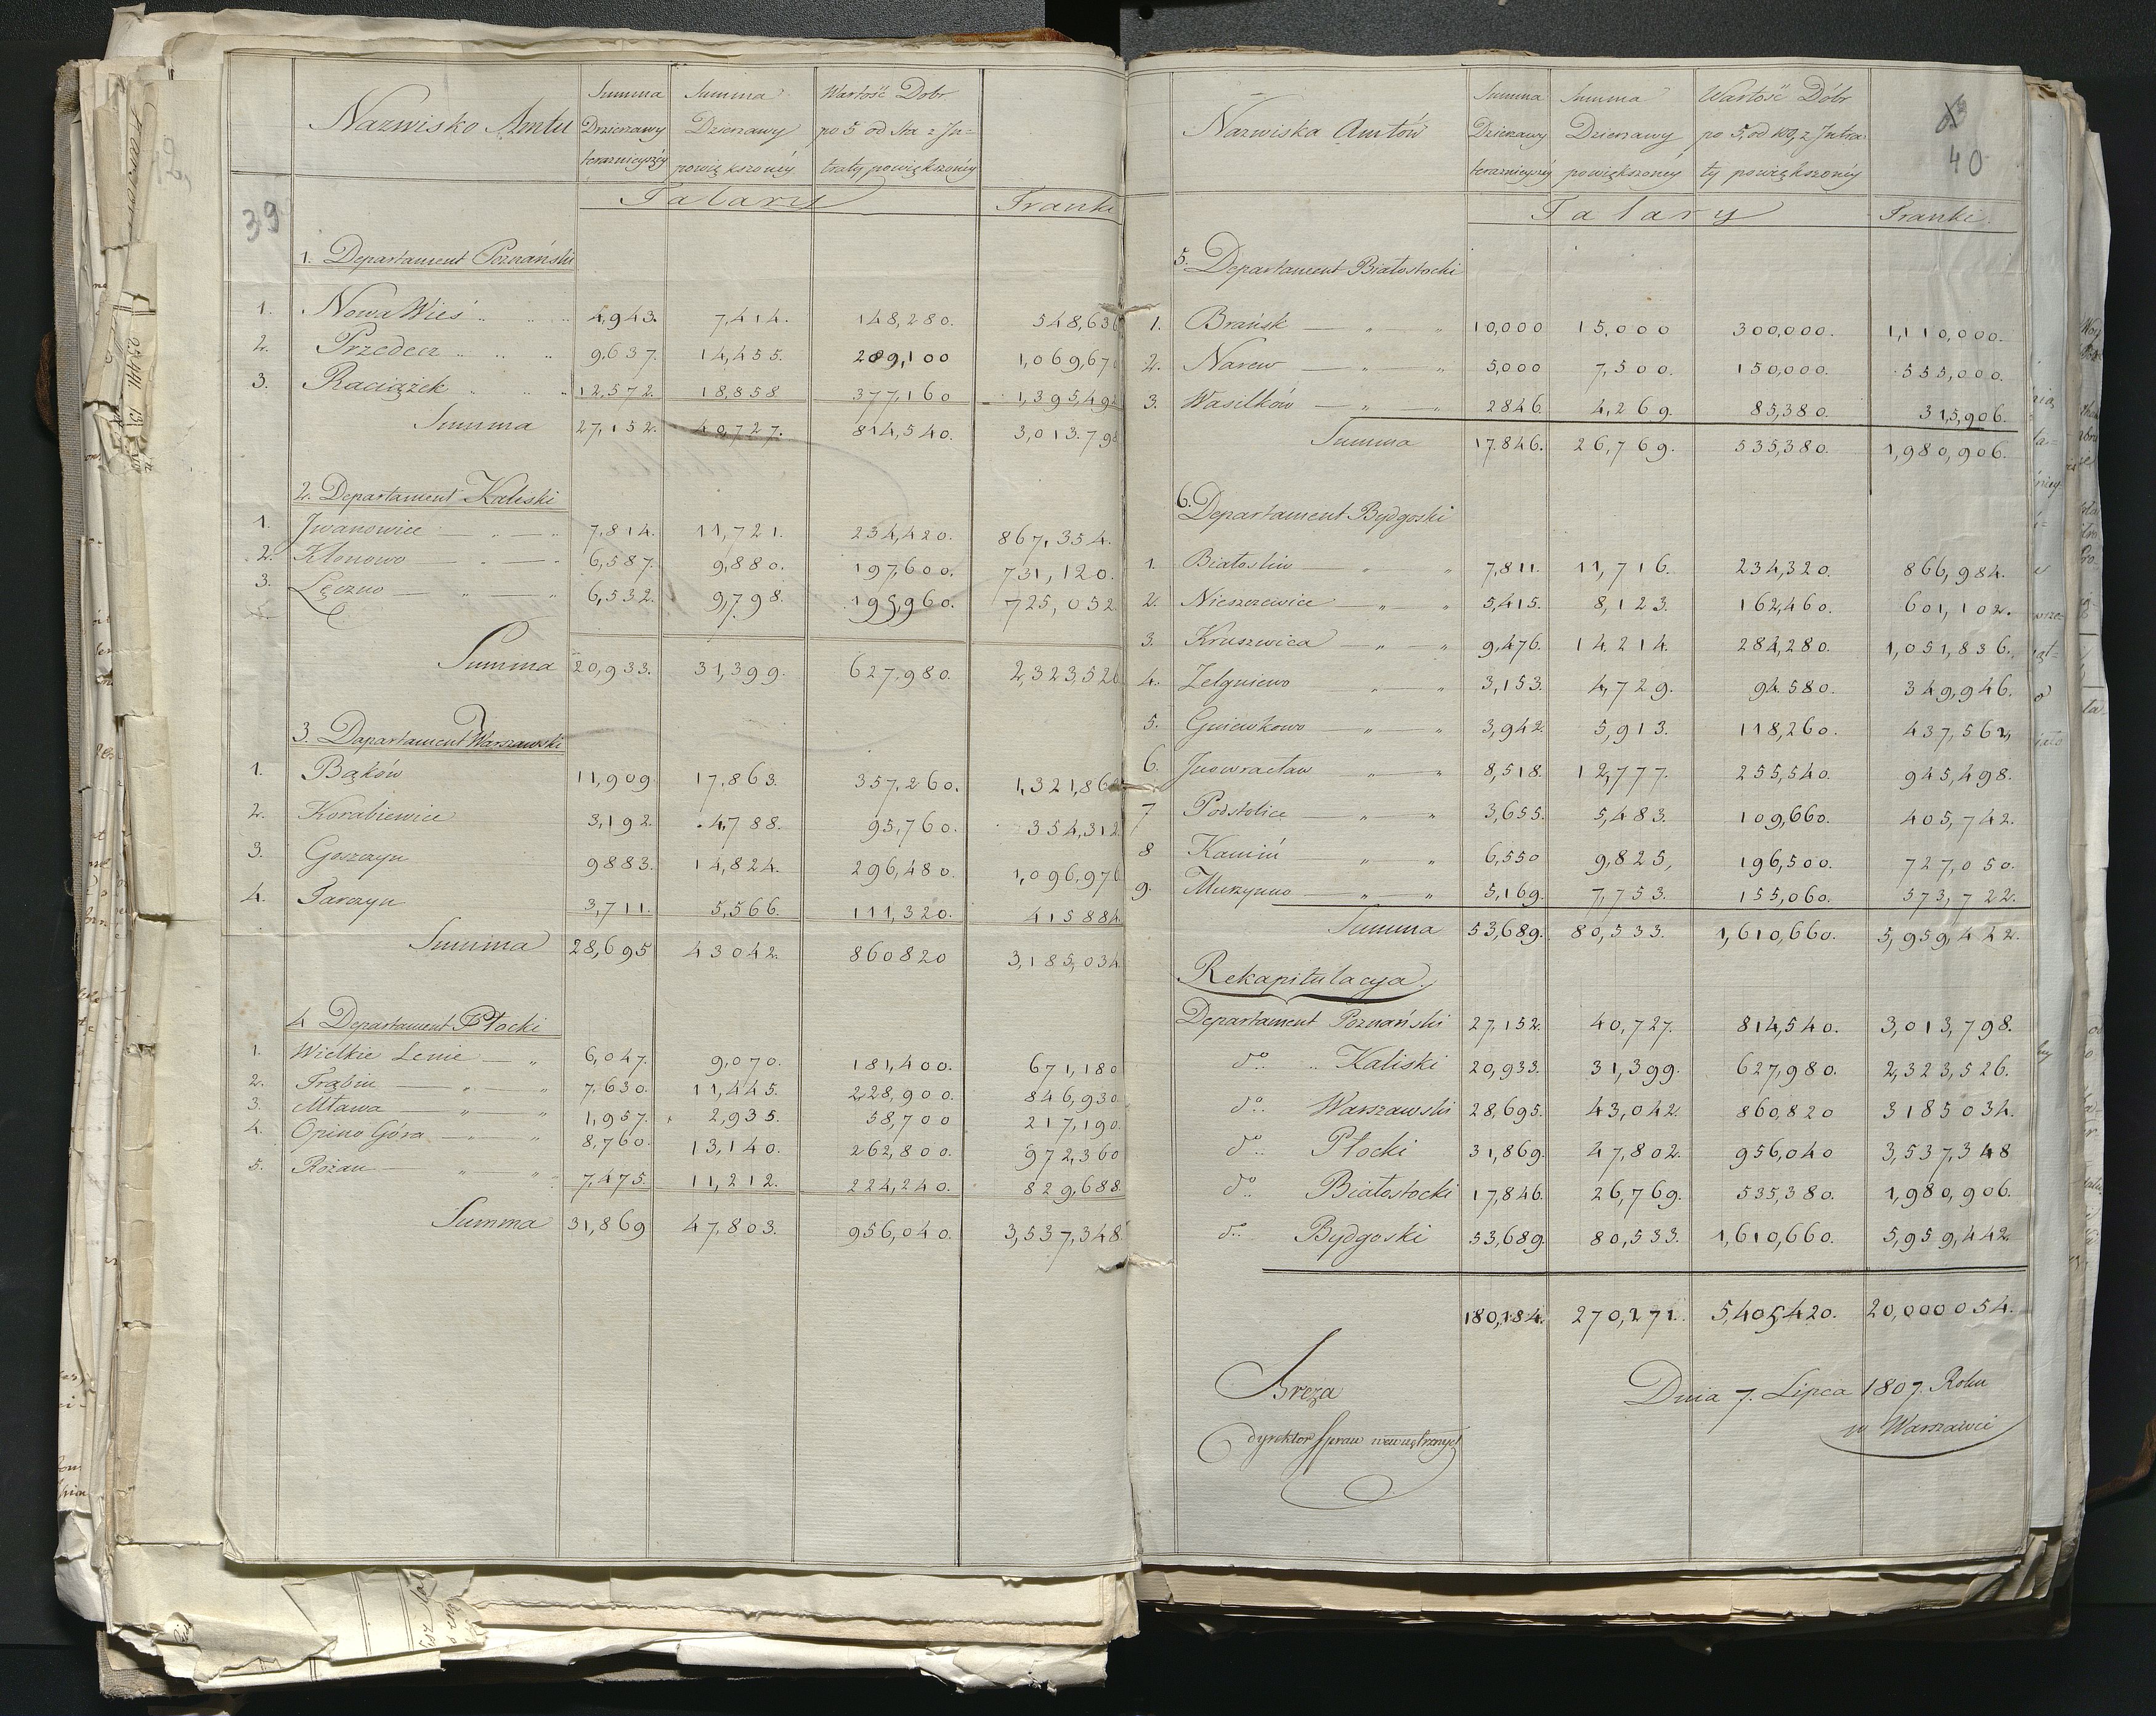 39
Nazwisko Amtu | Summa Dzierzawy teraznieyszéy | Summa Dzierzawy powiększonéy | Wartość Dobr po 5 od sta z Jn=traty powiększonéy
Talary | Franki
1. Departament Poznański
1. Nowa Wieś | 4,943. | 7,414. | 148,280. | 548,636
2. Przedecz | 9,637. | 14,455. | 289,100 | 1,069,670
3. Raciążek | 12,572. | 18,858 | 377,160 | 1,395,492
Summa | 27,152. | 40,727. | 814,540. | 3,013,798
2. Departament Kaliski
1. Jwanowice | 7,814. | 11,721. | 234,420. | 867,354.
2. Klonowo | 6,587. | 9,880. | 197,600. | 731,120.
3. Lęczno | 6,532. | 9,798. | 195,960. | 725,052
Summa | 20,933. | 31,399. | 627,980. | 2,323,526
3. Dapartament Warszawski
1. Bąków | 11,909 | 17,863. | 357,260. | 1,321,862
2. Korabiewice | 3,192. | 4,788. | 95,760. | 354,312
3. Goszczyn | 9883. | 14,824. | 296,480. | 1,096,976
4. Tarczyn | 3,711. | 5,566. | 111,320. | 415884
Summa | 28,695 | 43042. | 860820 | 3,185,034
4 Departament Płocki
1. Wielkie Lenie | 6,047. | 9,070. | 181,400. | 671,180
2. Trąbin | 7.630. | 11,445. | 228,900. | 846,930
3. Mława | 1,957. | 2,935. | 58,700 | 217,190.
4. Opino Góra | 8,760. | 13,140. | 262,800. | 972,360
5. Rożan | 7,475. | 11,212. | 224,240. | 829,688
Summa | 31,869 | 47,803. | 956,040. | 3,537,348.
40
Nazwiska Amtów | Summa Dzierzawy teraznieyszéy | Summa Dzierzawy powiększonéy | Wartość Dóbr po 5, od 100, z Jntra=ty powiększonéy
Talary | Franki.
5. Departament Białostocki
1. Brańsk | 10,000 | 15,000 | 300,000. | 1,110,000.
2. Narew | 5,000 | 7,500. | 150,000. | 555,000.
3. Wasilków | 2846. | 4,269. | 85,380. | 315,906.
Summa | 17.846. | 26,769. | 535,380. | 1,980,906.
6. Departament Bydgoski
1. Białosliw | 7,811. | 11,716. | 234,320. | 866,984.
2. Nieszzewice | 5,415. | 8,123. | 162,460. | 601,102.
3. Kruszwica | 9,476. | 14.214. | 284,280. | 1,051,836.
4. Zelgniewo | 3,153. | 4,729. | 94.580. | 349,946.
5. Gniewkowo | 3,942. | 5,913. | 118,260. | 437,562,
6. Jnowracław | 8,518. | 12,777. | 255,540. | 945,498.
7 Podstolice | 3,655. | 5,483. | 109,660. | 405,742.
8 Kamiń | 6,550 | 9,825, | 196,500. | 727,050.
9. Murzynno | 5,169. | 7,753. | 155,060. | 573,722.
Summa | 53,689. | 80,533. | 1,610,660. | 5,959,442.
Rekapitulacya.
Departament Poznański | 27,152. | 40,727. | 814,540. | 3,013,798.
do.. Kaliski | 20,933. | 31,399. | 627,980. | 2,323,526.
do.. Warszawski | 28,695. | 43,042. | 860,820 | 3185034.
do.. Płocki | 31,869. | 47,802. | 956,040 | 3,537,348
do.. Białostocki | 17,846. | 26,769. | 535,380. | 1,980,906.
do.. Bydgoski | 53,689. | 80,533. | 1,610,660. | 5,959,442.
180,184. | 270,271. | 5,405,420. | 20,000054.
Breza
dyrektor Spraw wewnętrznych
Dnia 7. Lipca 1807. Roku
w Warszawie